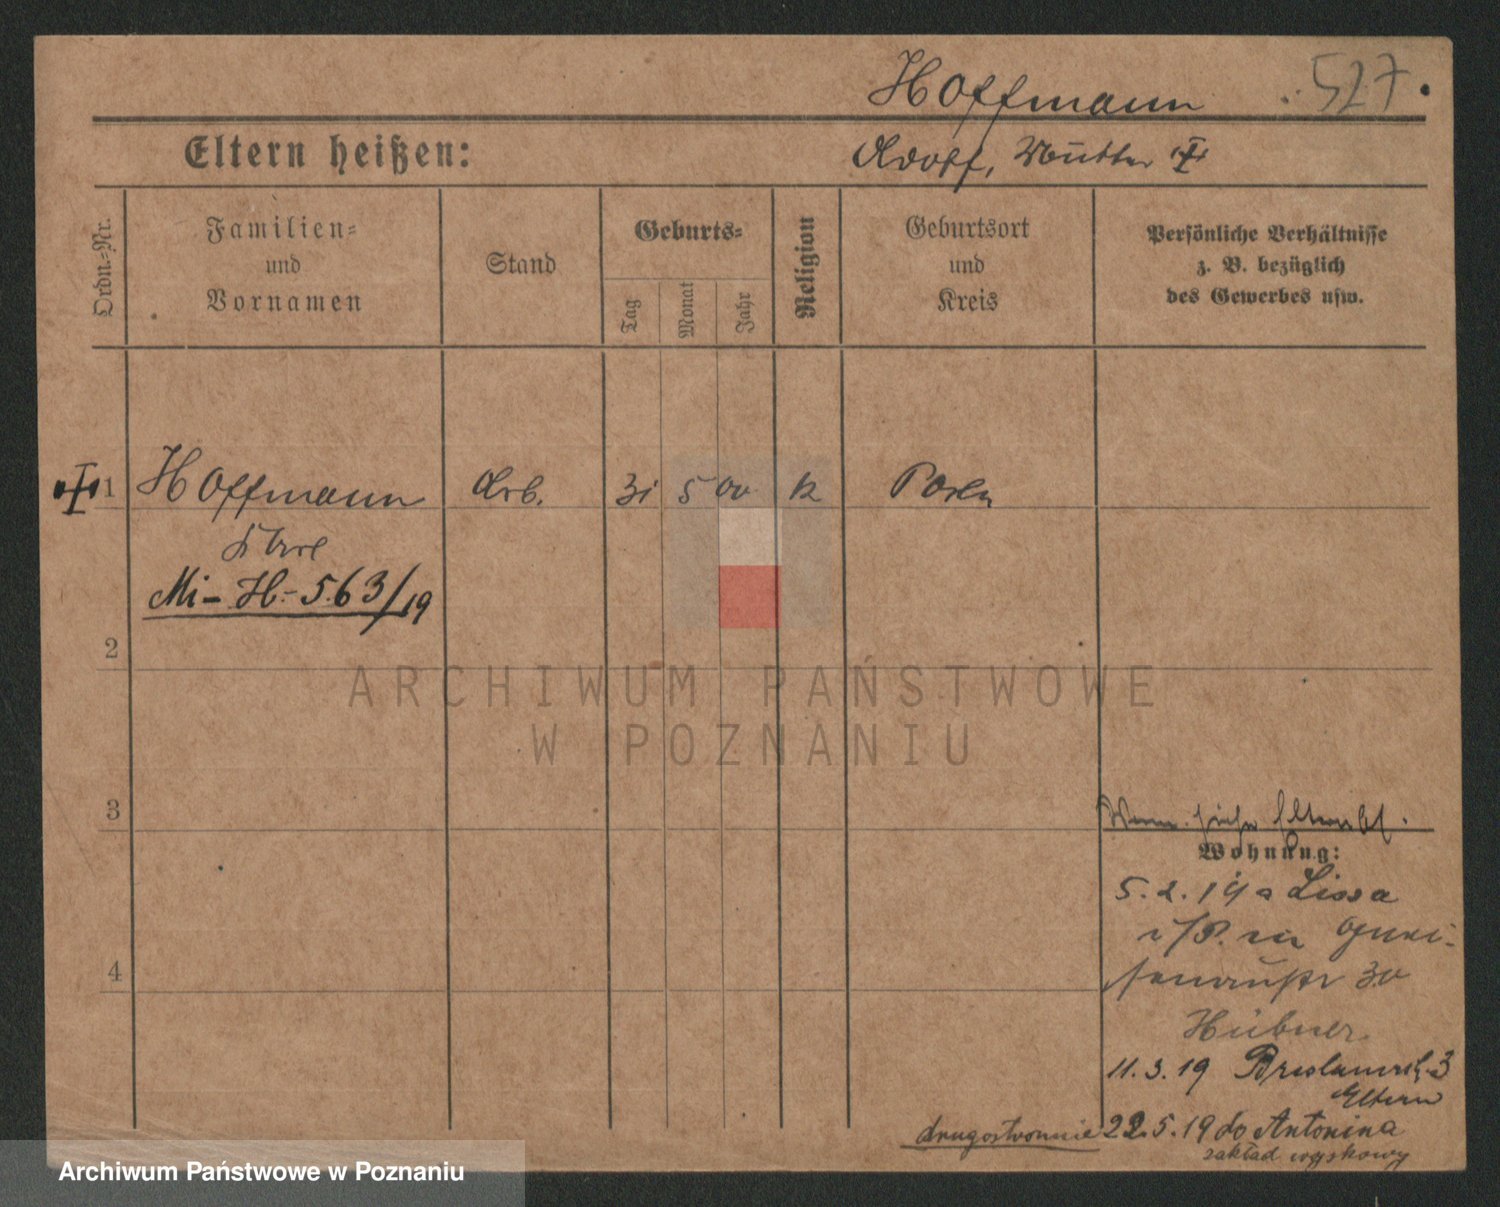 Hoffmann 527.
Eltern heißen: Adolf, Mutter
Ordn.=Nr.
Familien=
und
Vornamen
Stand
Geburts=
Tag
Monat
Jahr
Religion
Geburtsort
und
Kreis
Persönliche Verhältnisse
z. B. bezüglich
des Gewerbes usw.
1 Hoffmann Arb. 31 5 00 k Posen
Mi - H - 563/19
2
ARCHIWUM PAŃSTWOWE
W POZNANIU
3
Wohnung:
5. 2. 19 a Lissa
i/P. Gnei-
4
senaustr 30
Hübner
11. 3. 19 Breslauerstr. 3
Eltern
drugostronnie 22. 5. 19 do Antonina
zakład
Archiwum Państwowe w Poznaniu